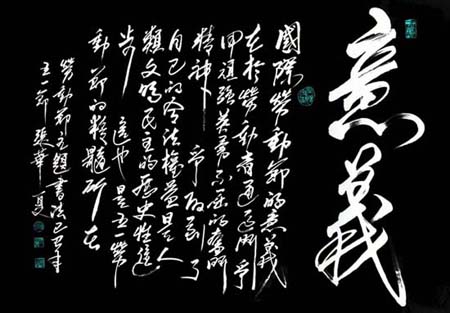 意義
國際勞動節的意義
在於勞動者通過鬥爭
用頑強英勇不屈的奮鬥
精神 爭取到了
自己的合法權益是人
類文明民主的歷史性進
步 這也是五一勞
動節的精髓所在
勞動節主題書法己丑年
五一節 張華夏